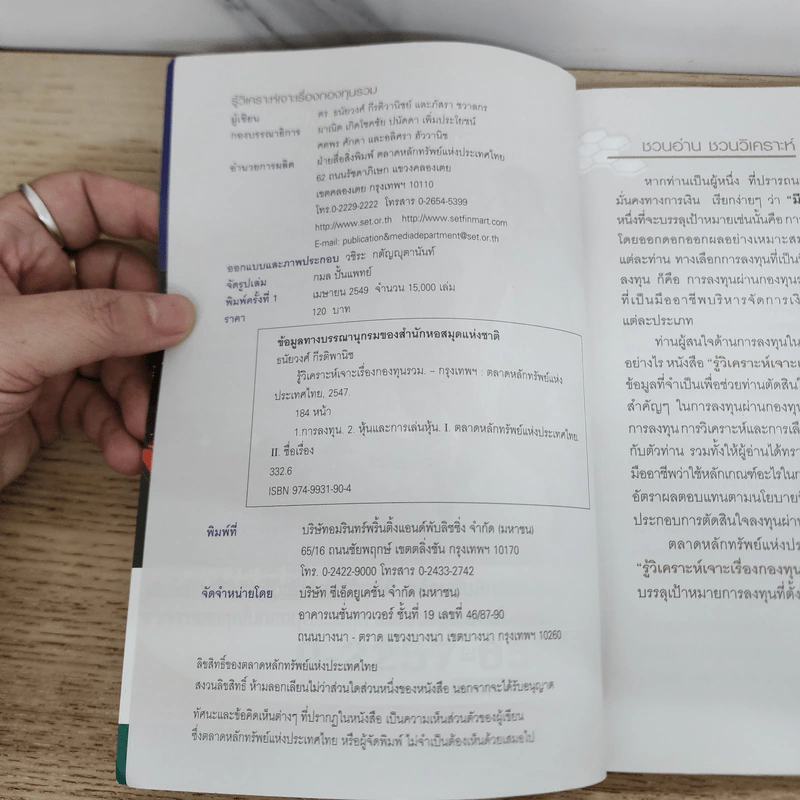 รู้วิเคราะห์เจาะเรื่องกองทุนรวม
ผู้เขียน ดร. ธนัยวงศ์ กีรติวานิชย์ และภัสรา ชวาลกร
กองบรรณาธิการ ผาณิต เกิดโชคชัย ปนัดดา เพิ่มประโยชน์
คคพร ศักดา และอลิศรา ฮัววานิช
อำนวยการผลิต ฝ่ายสื่อสิ่งพิมพ์ ตลาดหลักทรัพย์แห่งประเทศไทย
62 ถนนรัชดาภิเษก แขวงคลองเตย
เขตคลองเตย กรุงเทพฯ 10110
โทร.0-2229-2222 โทรสาร 0-2654-5399
http://www.set.or.th http://www.setfinmart.com
E-mail: publication&mediadepartment@set.or.th
ออกแบบและภาพประกอบ วชิระ กตัญญุตานันท์
จัดรูปเล่ม กมล ปั้นแพทย์
พิมพ์ครั้งที่ 1 เมษายน 2549 จำนวน 15,000 เล่ม
ราคา 120 บาท
ข้อมูลทางบรรณานุกรมของสำนักหอสมุดแห่งชาติ
ธนัยวงศ์ กีรติพานิช
รู้วิเคราะห์เจาะเรื่องกองทุนรวม. – กรุงเทพฯ : ตลาดหลักทรัพย์แห่ง
ประเทศไทย, 2547.
184 หน้า
1.การลงทุน. 2. หุ้นและการเล่นหุ้น. I. ตลาดหลักทรัพย์แห่งประเทศไทย
II. ชื่อเรื่อง
332.6
ISBN 974-9931-90-4
พิมพ์ที่ บริษัทอมรินทร์พริ้นติ้งแอนด์พับลิชชิ่ง จำกัด (มหาชน)
65/16 ถนนชัยพฤกษ์ เขตตลิ่งชัน กรุงเทพฯ 10170
โทร. 0-2422-9000 โทรสาร 0-2433-2742
จัดจำหน่ายโดย บริษัท ซีเอ็ดยูเคชั่น จำกัด (มหาชน)
อาคารเนชั่นทาวเวอร์ ชั้นที่ 19 เลขที่ 46/87-90
ถนนบางนา - ตราด แขวงบางนา เขตบางนา กรุงเทพฯ 10260
ลิขสิทธิ์ของตลาดหลักทรัพย์แห่งประเทศไทย
สงวนลิขสิทธิ์ ห้ามลอกเลียนไม่ว่าส่วนใดส่วนหนึ่งของหนังสือ นอกจากจะได้รับอนุญาต
ทัศนะและข้อคิดเห็นต่างๆ ที่ปรากฏในหนังสือ เป็นความเห็นส่วนตัวของผู้เขียน
ซึ่งตลาดหลักทรัพย์แห่งประเทศไทย หรือผู้จัดพิมพ์ ไม่จำเป็นต้องเห็นด้วยเสมอไป
ชวนอ่าน ชวนวิเคราะห์
หากท่านเป็นผู้หนึ่ง ที่ปรารถน
มั่นคงทางการเงิน เรียกง่ายๆ ว่า "มี
หนึ่งที่จะบรรลุเป้าหมายเช่นนั้นคือ การ
โดยออกดอกออกผลอย่างเหมาะสม
แต่ละท่าน ทางเลือกการลงทุนที่เป็นที่
ลงทุน ก็คือ การลงทุนผ่านกองทุนร
ที่เป็นมืออาชีพบริหารจัดการเงิ
แต่ละประเภท
ท่านผู้สนใจด้านการลงทุนใน
อย่างไร หนังสือ "รู้วิเคราะห์เจาะเ
ข้อมูลที่จำเป็นเพื่อช่วยท่านตัดสินใ
สำคัญๆ ในการลงทุนผ่านกองทุน
การลงทุน การวิเคราะห์และการเลื
กับตัวท่าน รวมทั้งให้ผู้อ่านได้ทรา
มืออาชีพว่าใช้หลักเกณฑ์อะไรในก
อัตราผลตอบแทนตามนโยบายที่
ประกอบการตัดสินใจลงทุนผ่า
ตลาดหลักทรัพย์แห่งปร
"รู้วิเคราะห์เจาะเรื่องกองทุน
บรรลุเป้าหมายการลงทุนที่ตั้ง